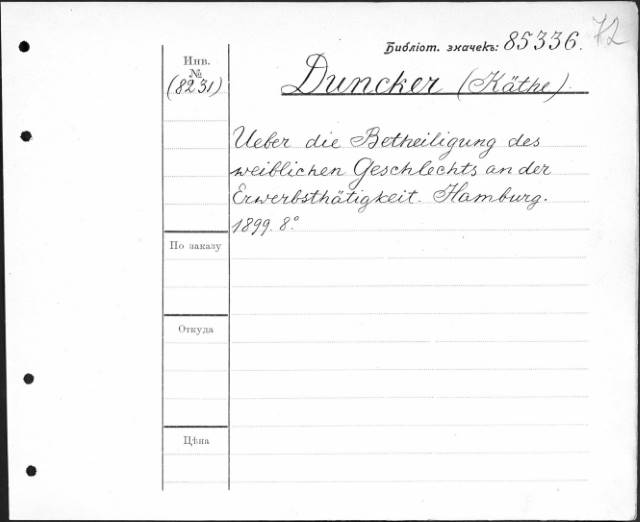 72
Библіот. значекъ: 85336.
Инв.
№
(8231)
Duncker (Käthe).
Ueber die Betheiligung des
weiblichen Geschlechts an der
Erwerbsthätigkeit. Hamburg.
1899. 8°.
По заказу
Откуда
Цѣна